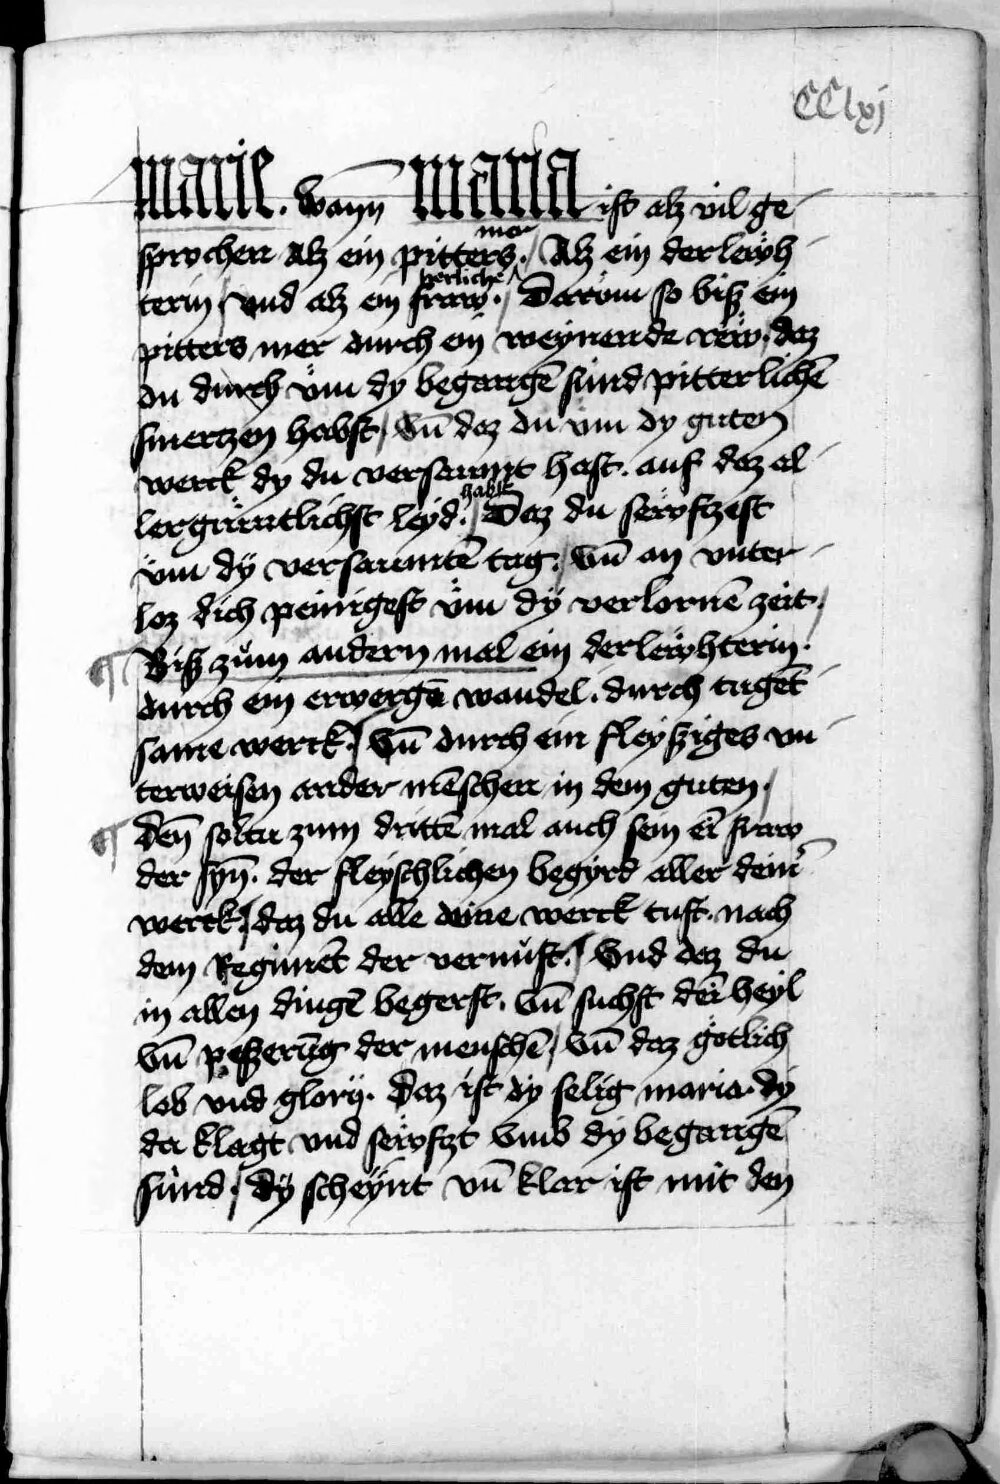 CClxj
marie. wann maria ist alz vil ge
sprochen Alz ein pitters mer. / Alz ein derleẅh
terin / vnd alz ein herliche fraw. / Daröm so biß ein
pitters mer durch ein weynende reẅ. daz
du durch vm̈ dy begangē sünd pitterlichē
smertzen habst / vn̄ daz du vm̈ dy guten
werck dy du versaumt hast. auf daz al
lergrüntlichst leyd habst. / Daz du seẅfzest
vm̈ dÿ versaumtē tag. / vn̄ an vnter
loz dich peinigest vm̈ dÿ verlornē zeit. /
¶ Biß zům andern mal ein derleẅhterin.
durch ein erwergē wandel. durch tugēt
same werck. / vn̄ durch ein fleyßiges vn
terweisen ander mēschen in dem guten. /
¶ Den̄ soltu zum drittē mal auch sein eī fraw
der syn̄. der fleyschlichen begyrd aller deiner
werck. / daz du alle deine werck tust. nach
dem Regimēt der vernüft. / Vnd daz du
in allen dingē begerst. vn̄ suchst deī heyl
vn̄ peßerūg der menschē / vn̄ daz götlich
lob vnd glory. Daz ist dy selig maria. dy
da klagt vnd seẅfzt vmb dy begangē
sünd. / dÿ scheÿnt vn̄ klar ist mit den